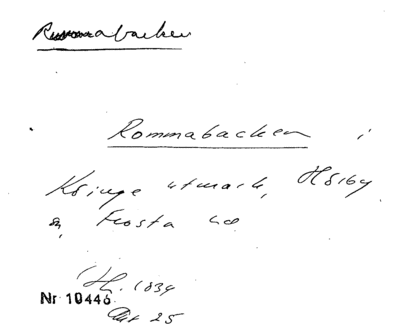 Rommabacken
Rommabacken i
Ksinge utmark, Hörby
sn, Frosta hd
Hh. 1834
Nr 10446
Akt 25